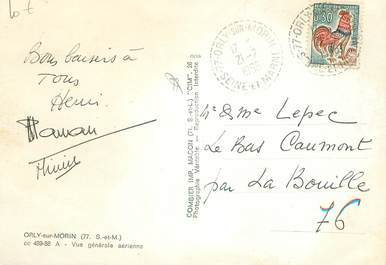 Bons baisers à
Tous
Henri
Maman
ORLY-sur-MORIN (77. S.-et-M.)
cc 489-88 A - Vue générale aérienne
COMBIER IMP. MACON (71. S.-et-L.) "CIM"
Photographie Véritable - Reproduction Interdite
77-ORLY-SUR-MORIN
17
21-7
SEINE-ET-MARNE
0,30
Mr & Mme Lepec
Le Bas Caumont
par La Bouille
76